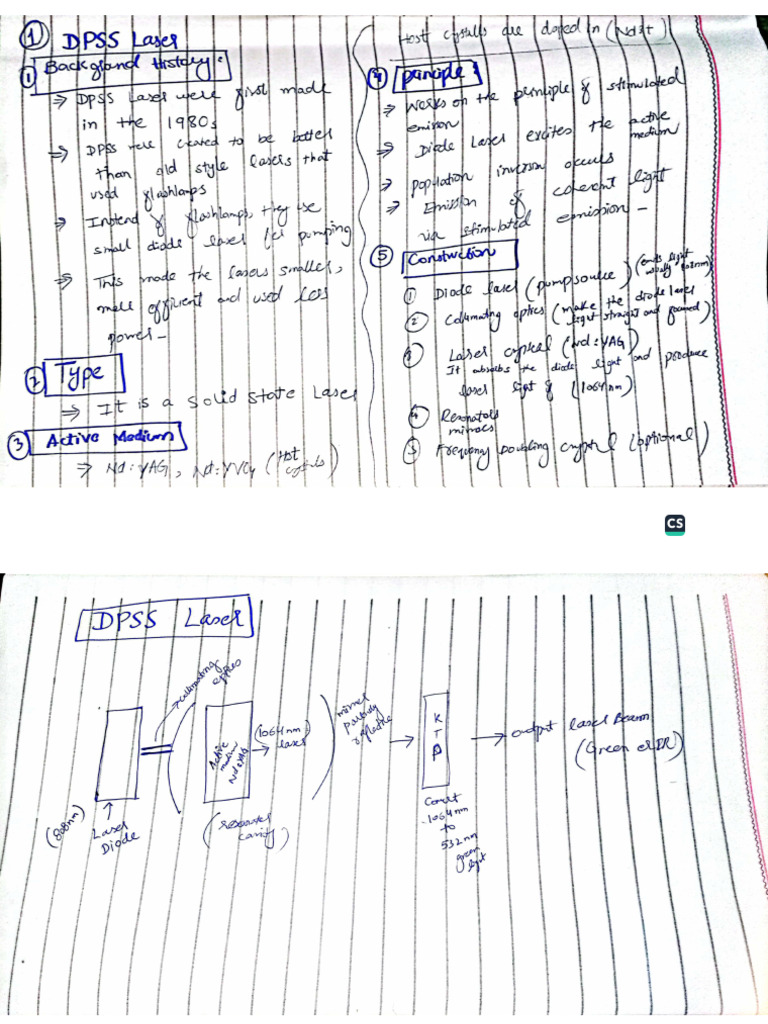 ① DPSS Laser
① Background History:
⇒ DPSS Laser were first made
in the 1980s
⇒ DPSS were created to be better
than old style lasers that
used flashlamps
⇒ Instead of flashlamps, they use
small diode laser for pumping
⇒ This made the lasers smaller,
more efficient and used less
power
② Type
⇒ It is a Solid State Laser
③ Active Medium
⇒ Nd:YAG, Nd:YVO4 (Host crystals)
Host crystals are doped in (Nd3+)
④ principle:
⇒ Works on the principle of stimulated
emission
⇒ Diode Laser excites the active
medium
⇒ population inversion occurs
⇒ Emission of coherent light
via stimulated emission
⑤ Construction
① Diode laser (pump source) (emits light usually 808nm)
② Collimating optics (make the diode laser
light straight and focused)
③ Laser crystal (Nd:YAG)
It absorbs the diode light and produce
laser light of (1064nm)
④ Resonators
mirrors
⑤ Frequency Doubling crystal (optional)
CS
DPSS Laser
collimating
optics
(808nm)
Laser
Diode
Active
medium
Nd:YAG
(1064nm)
laser
(resonator
cavity)
mirror
partially
reflective
KTP
1064nm
to
532nm
green
light
output laser Beam
(Green or IR)